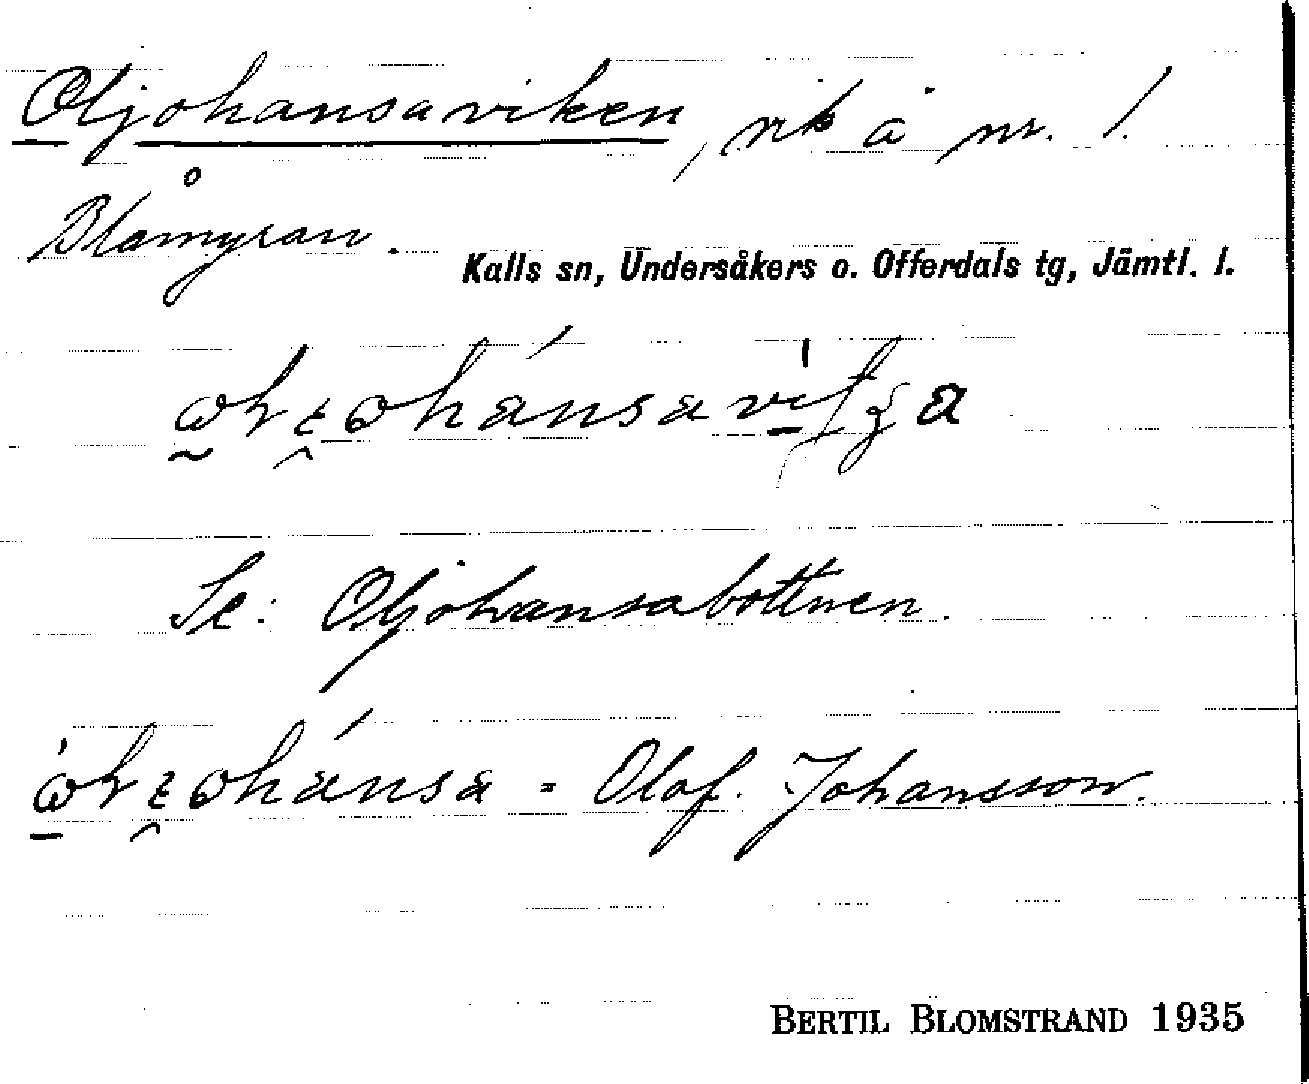 Oljohansaviken, vik å nr. 1.
Blåmyran.
Kalls sn, Undersåkers o. Offerdals tg, Jämtl. l.
Se: Oljohansabottnen.
= Olof. Johansson.
BERTIL BLOMSTRAND 1935